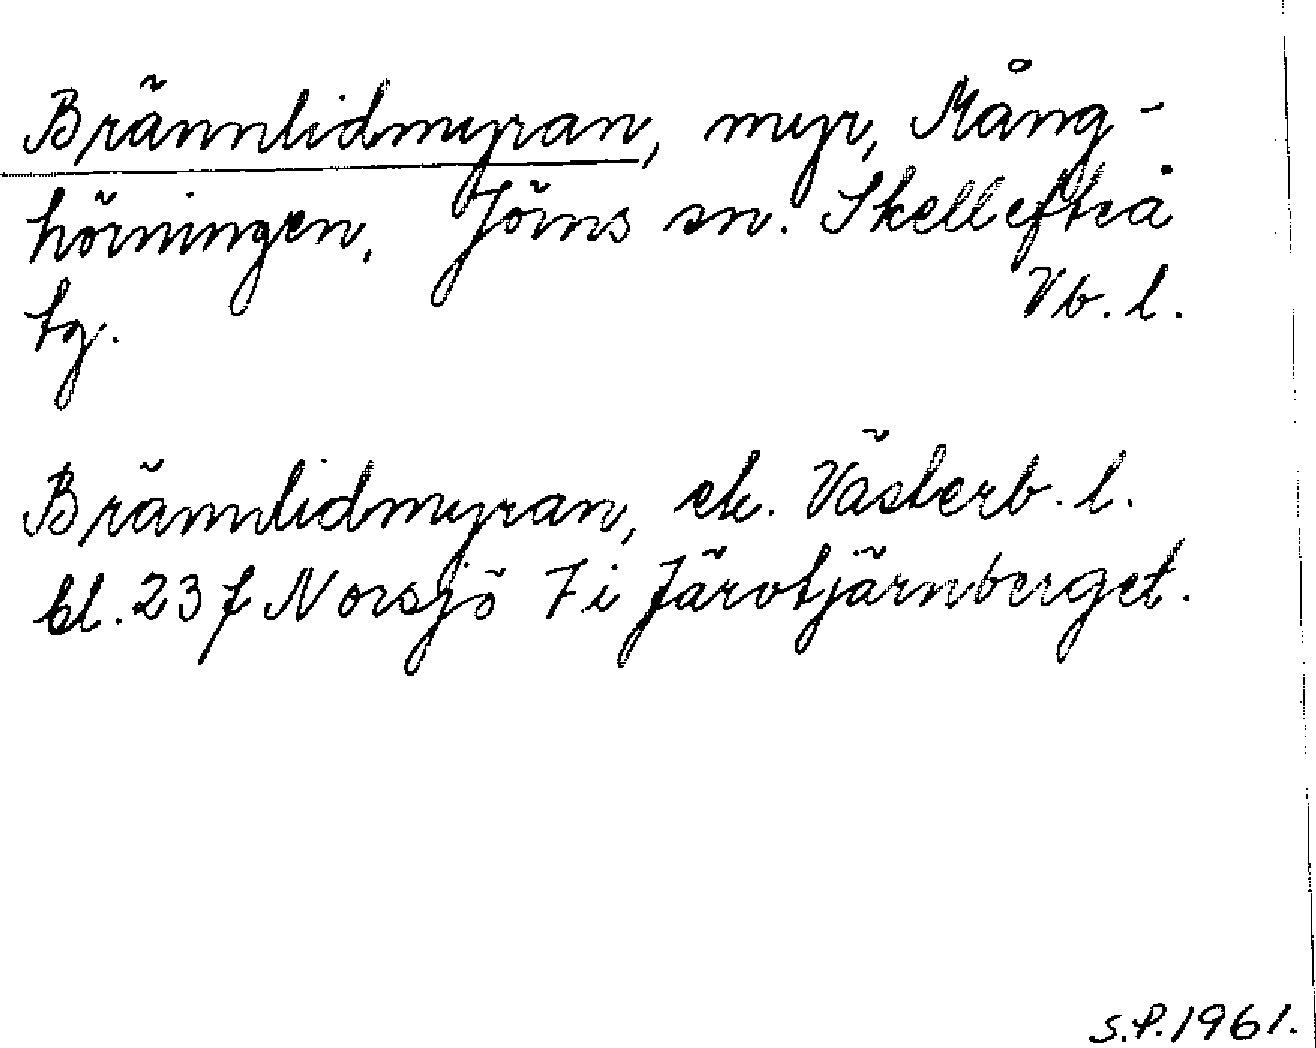 Brännlidmyran, myr, Mång-
hörningen, Jörns sn. Skellefteå
tg. Vb. l.
Brännlidmyran, ek. Västerb. l.
bl. 23 f Norsjö 7 i Järvtjärnberget.
S.P. 1961.